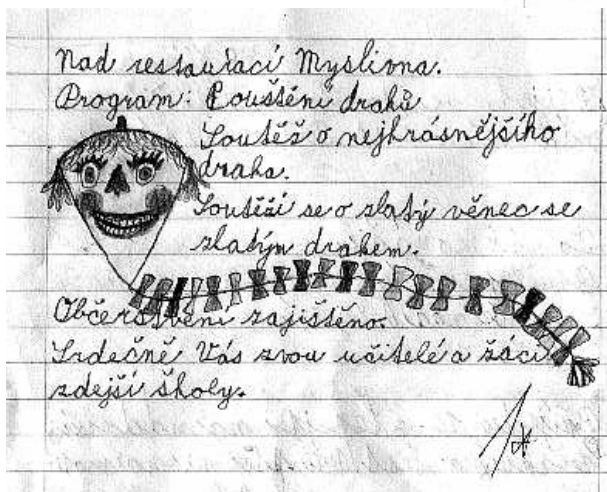 Nad restaurací Myslivna.
Program: Pouštění draků
Soutěž o nejkrásnějšího
draka.
Soutěží se o zlatý věnec se
zlatým drakem.
Občerstvení zajištěno.
Srdečně Vás zvou učitelé a žáci
zdejší školy.